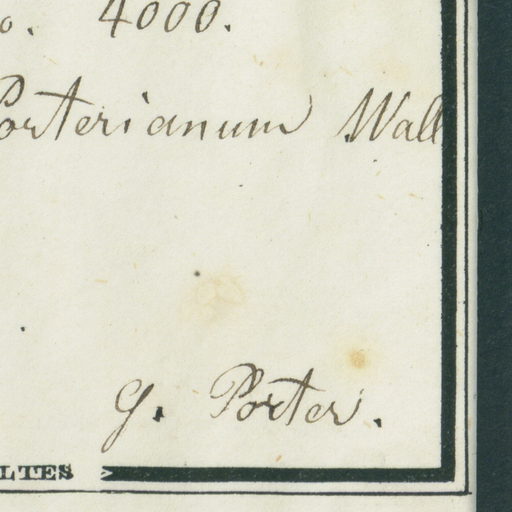 o. 4000.
Porterianum Wall
G. Porter.
LTES